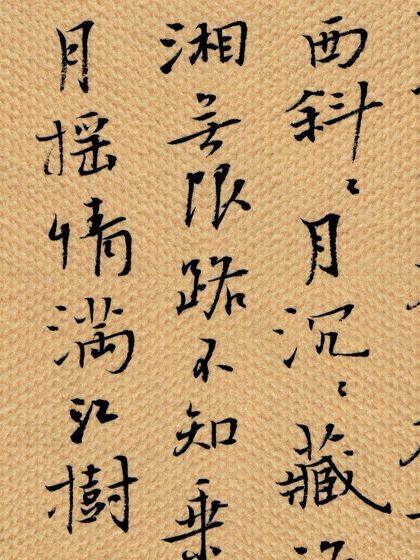 西斜〻月沉〻藏
湘無限路不知乗
月摇情滿江樹